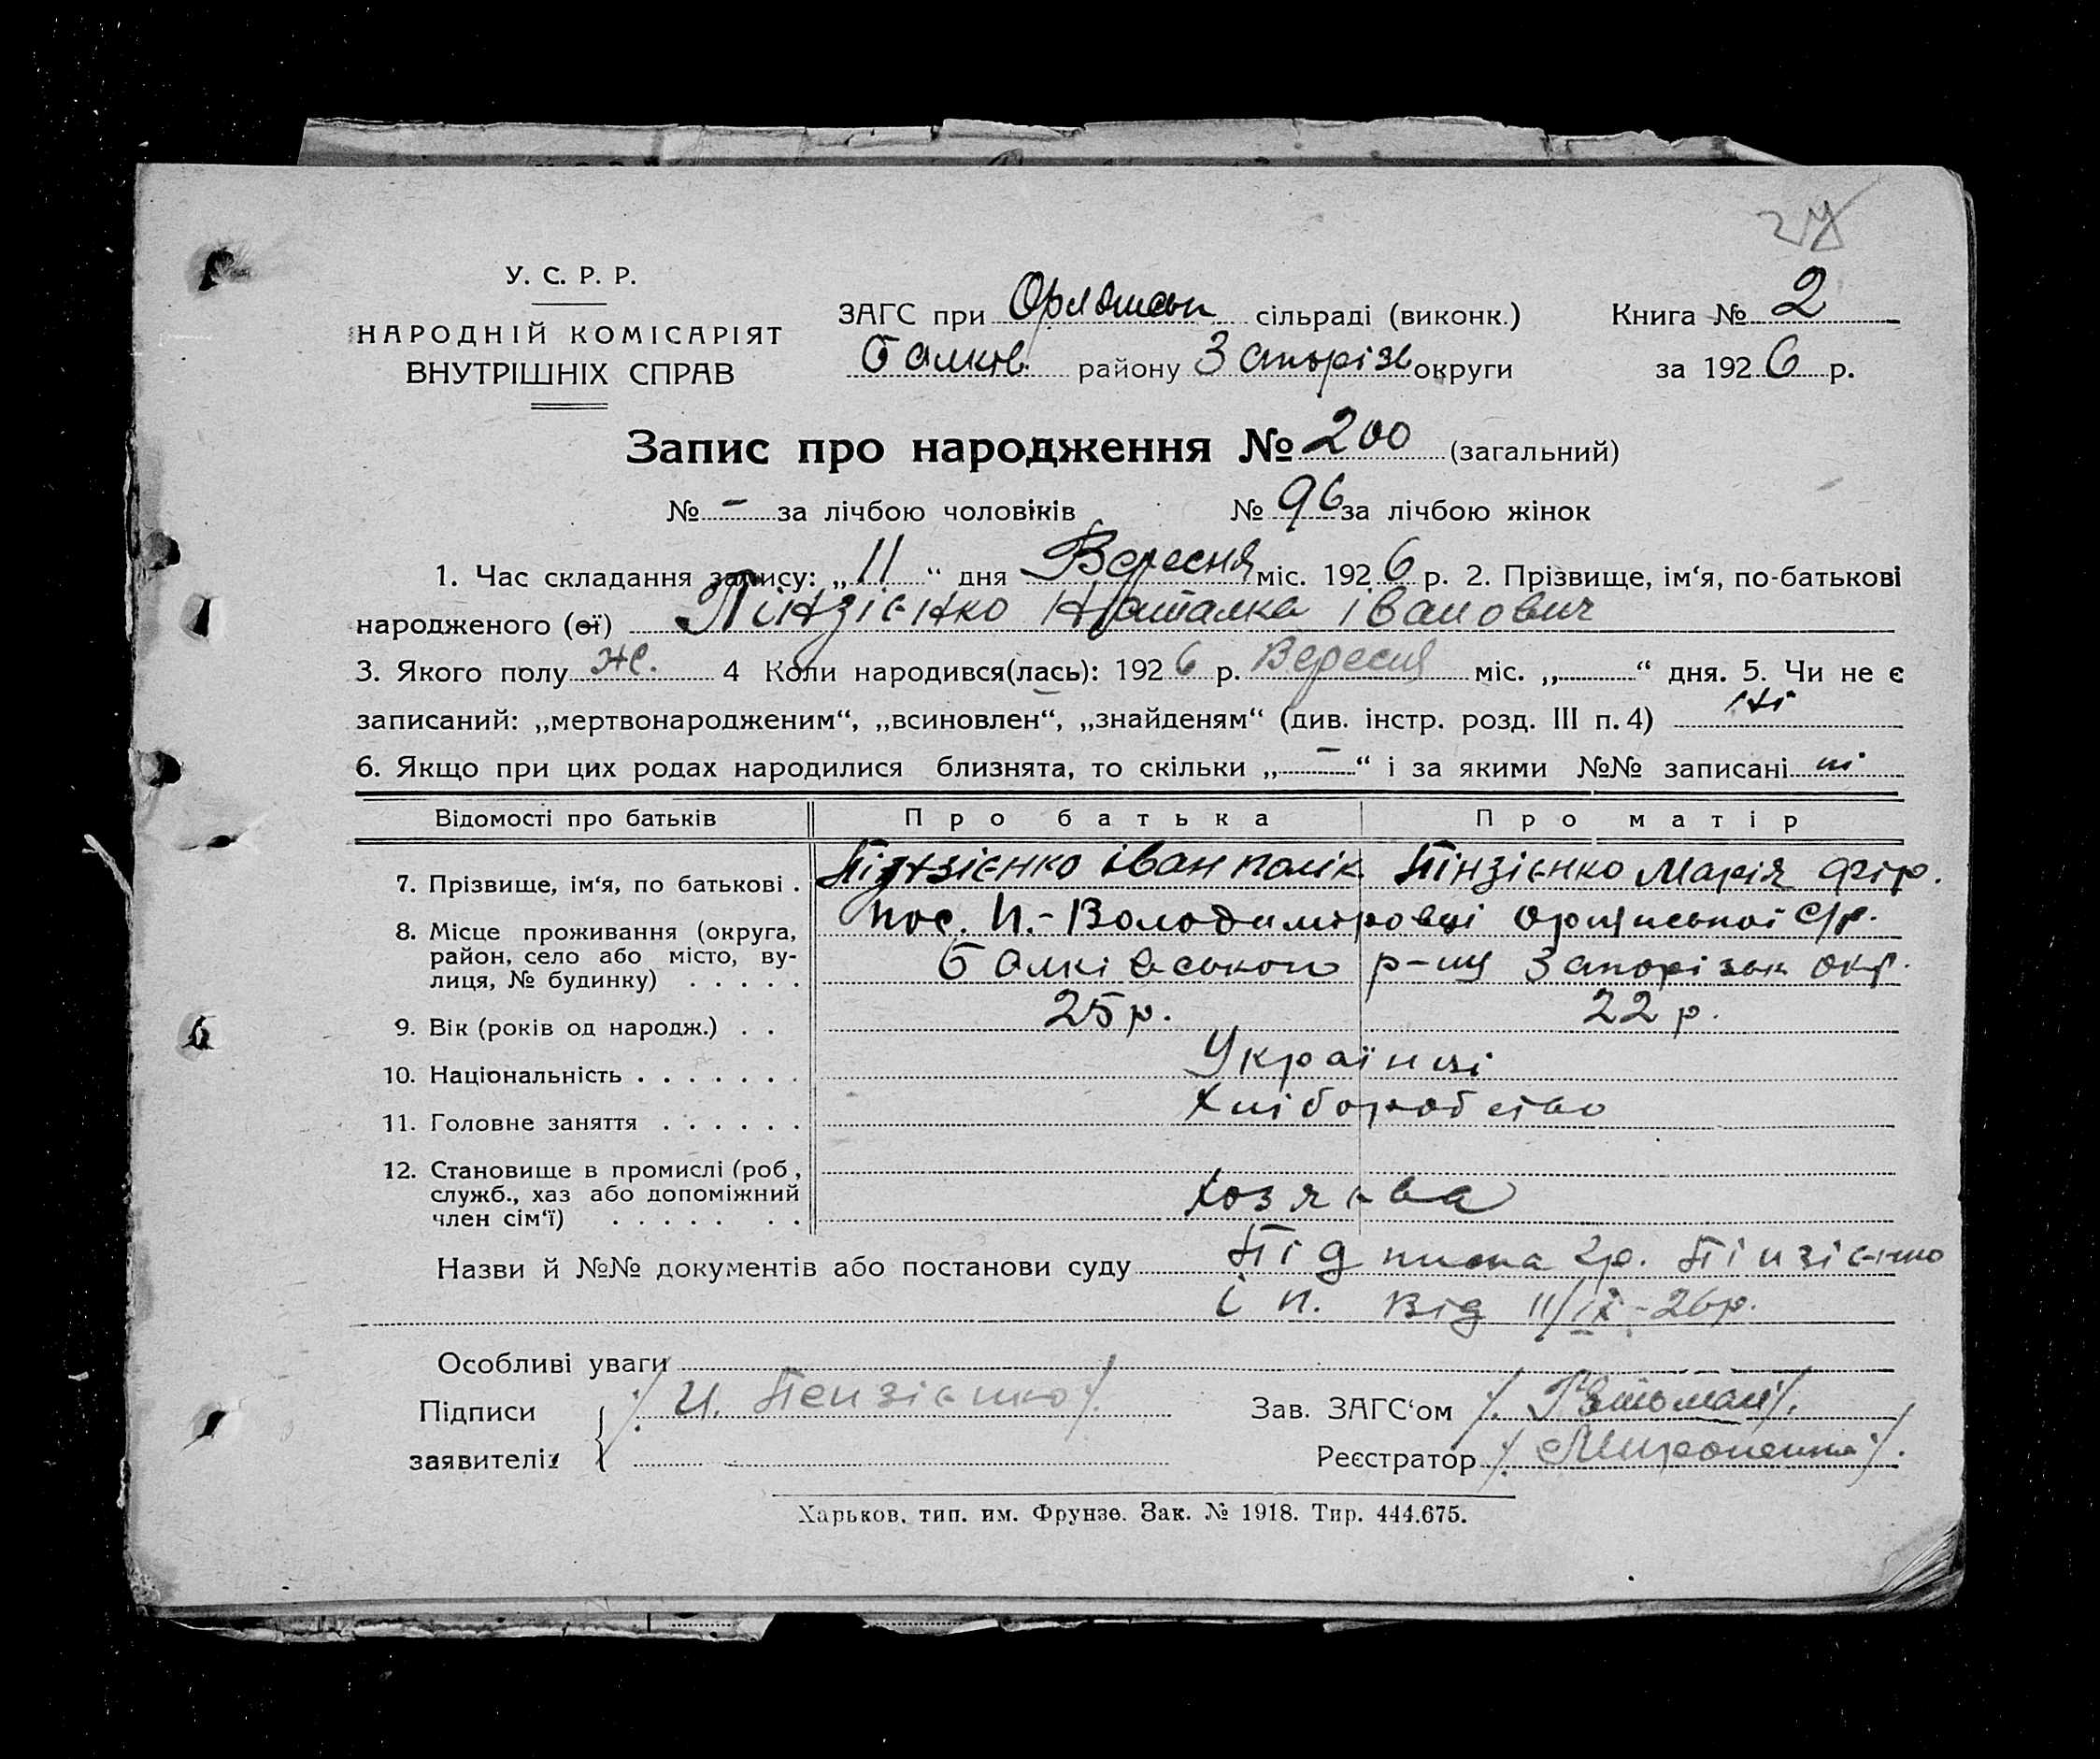 У. С. Р. Р.
НАРОДНІЙ КОМІСАРІЯТ
ВНУТРІШНІХ СПРАВ
ЗАГС при сільраді (виконк.)
Балків. району Запорізь округи
Книга № 2
за 1926 р.
Запис про народження № 200 (загальний)
№ - за лічбою чоловіків № 96 за лічбою жінок
1. Час складання запису: „11“ дня Вересня міс. 1926 р. 2. Прізвище, ім‘я, по-батькові
народженого (ої) Пінзієнко Наталка Іванович
3. Якого полу ж. 4 Коли народився(лась): 1926 р. Вересня міс. „ “ дня. 5. Чи не є
записаний: „мертвонародженим“, „всиновлен“, „знайденям“ (див. інстр. розд. III п. 4) ні
6. Якщо при цих родах народилися близнята, то скільки „-“ і за якими №№ записані ні
Відомості про батьків Про батька Про матір
7. Прізвище, ім‘я, по батькові . Пінзієнко Іван Пінзієнко Марія
8. Місце проживання (округа, пос. Н.-Володимировці с/р.
район, село або місто, ву- Балківського р-ну Запорізьк окр.
лиця, № будинку) . . . . .
9. Вік (років од народж.) . . 25 р. 22 р.
10. Національність . . . . . . . Українці
11. Головне заняття . . . . . . Хліборобство
12. Становище в промислі (роб.,
служб., хаз або допоміжний хозяєва
член сім‘ї) . . . . . . .
Назви й №№ документів або постанови суду Підписка гр. Пінзієнко
І П. від 11/IX-26р.
Особливі уваги
Підписи /. И. Пензієнко /. Зав. ЗАГС‘ом /. Гетьман /.
заявителів Реєстратор /. Мироненко /.
Харьков, тип. им. Фрунзе. Зак. № 1918. Тир. 444.675.